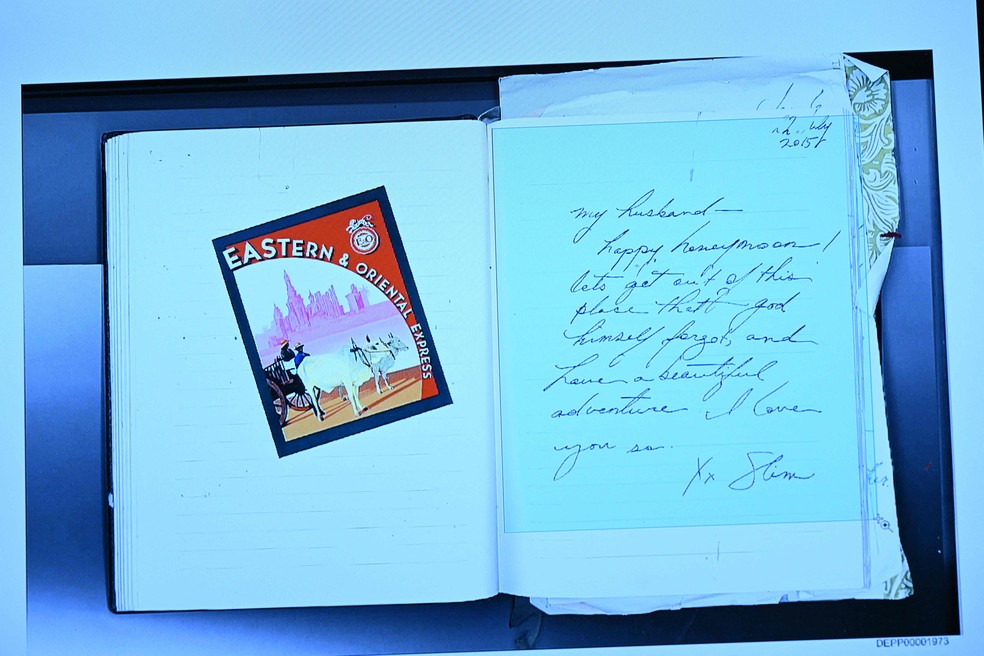 EASTERN & ORIENTAL EXPRESS
E&O
July
2015
my husband—
happy honeymoon!
let's get out of this
place that god
himself forgot, and
have a beautiful
adventure I love
you so.
Xx Slim
DEPP00001973